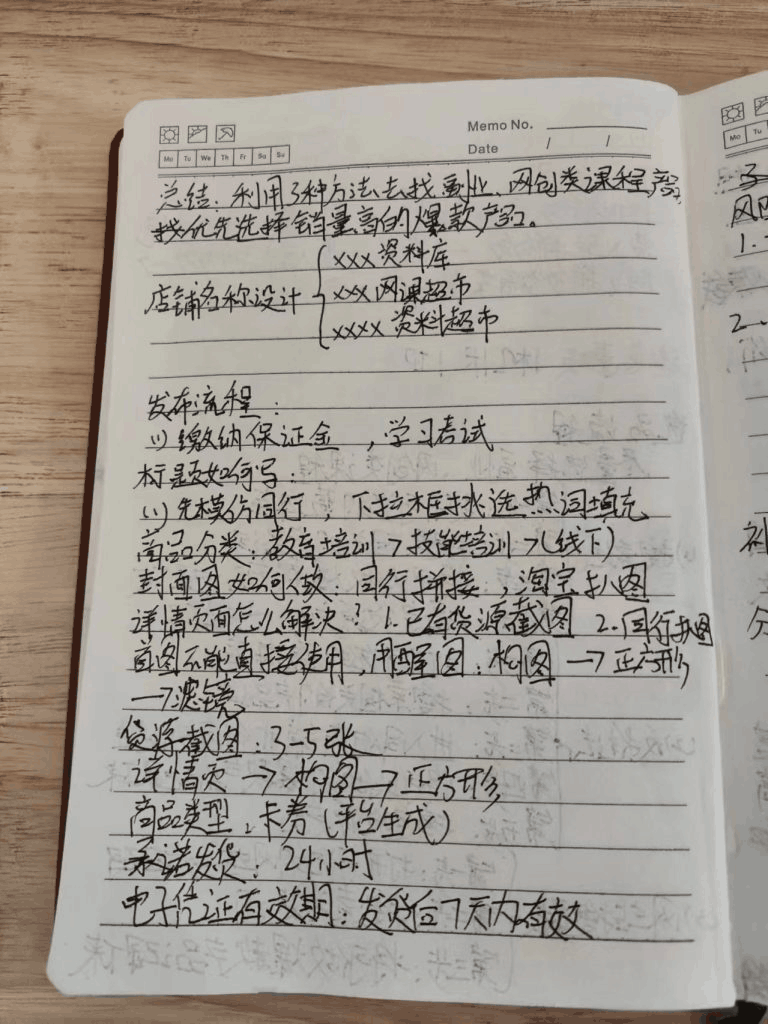 Memo No.
Mo Tu We Th Fr Sa Su
Date / /
总结:利用3种方法去找副业、网创类课程,产品
找优先选择销量高的爆款产品。
店铺名称设计
xxx资料库
xxx网课超市
xxxx资料超市
发布流程:
(1)缴纳保证金,学习考试
标题如何写:
(1)先模仿同行,下拉框挑选热词填充
商品分类:教育培训>技能培训>(线下)
封面图如何做:同行拼接,淘宝扒图
详情页面怎么解决?1.已有货源截图 2.同行扒图
首图不能直接使用,用醒图:构图→正方形
→滤镜
货源截图:3-5张
详情页→构图→正方形
商品类型:卡券(平台生成)
承诺发货:24小时
电子凭证有效期:发货后7天内有效
Mo Tu
1.
2.